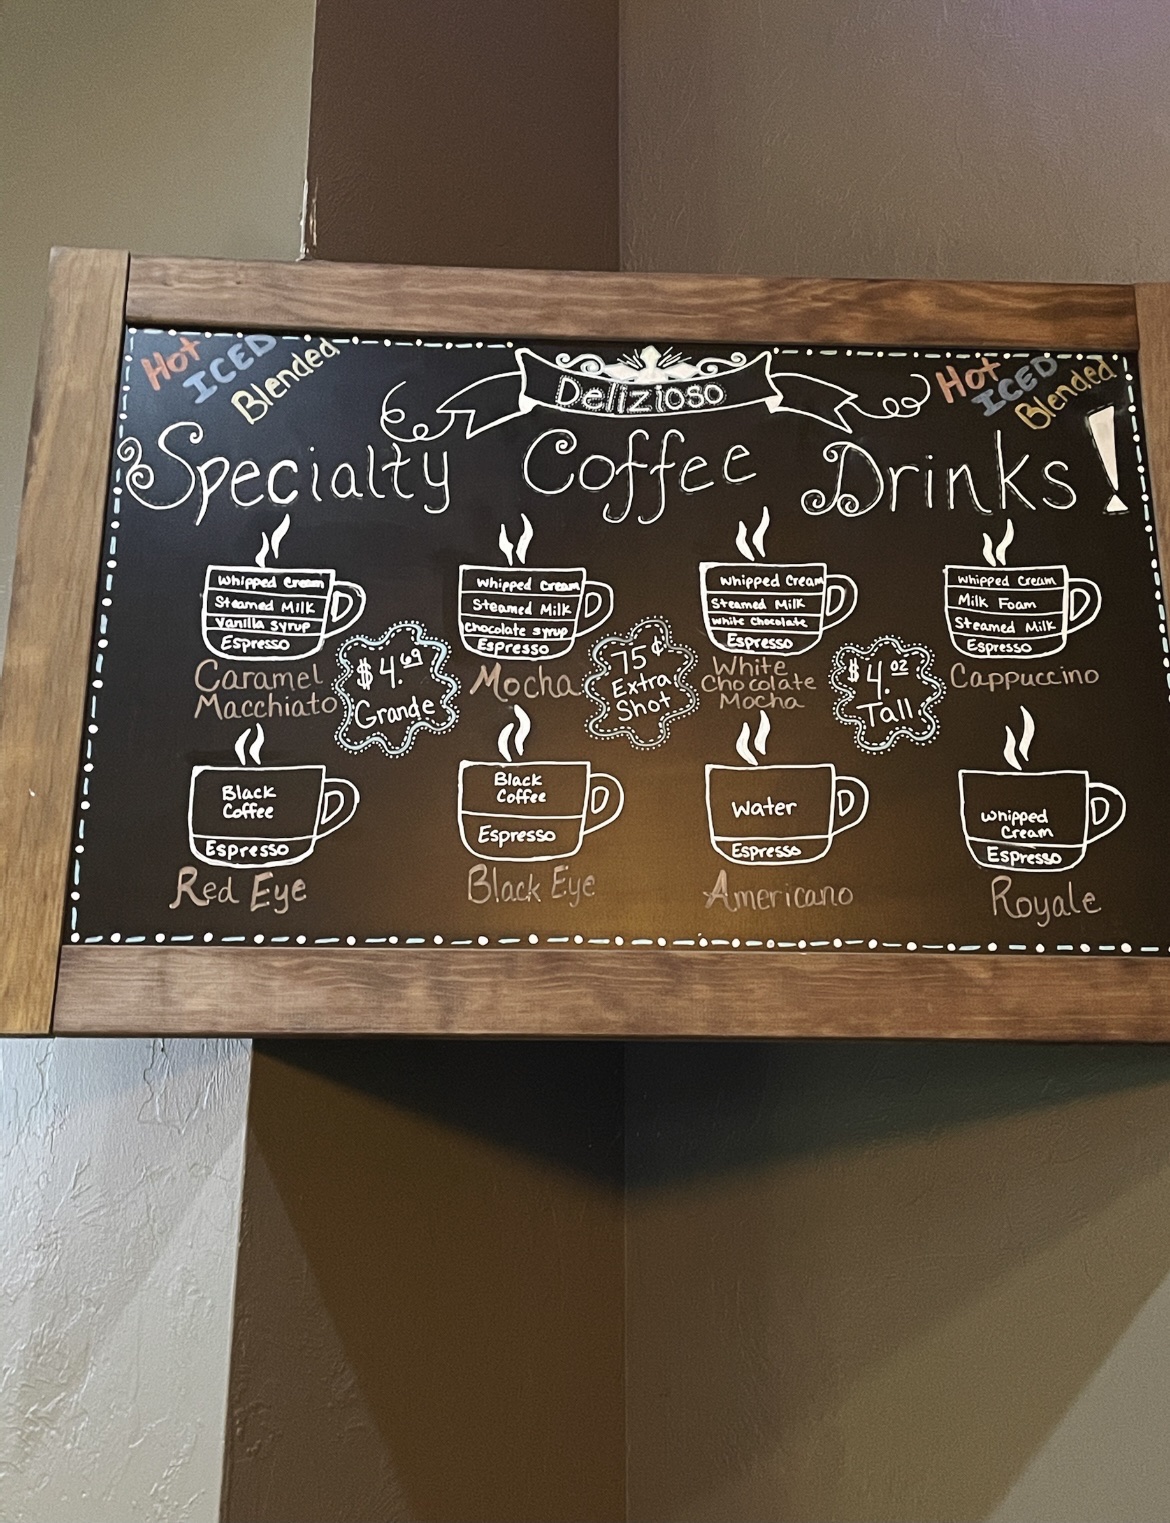 Hot
ICED
Blended
Delizioso
Hot
ICED
Blended
Specialty Coffee Drinks!
Whipped Cream
Steamed Milk
Vanilla Syrup
Espresso
Caramel
Macchiato
$4.69
Grande
Whipped Cream
Steamed Milk
Chocolate Syrup
Espresso
Mocha
75¢
Extra
Shot
Whipped Cream
Steamed Milk
White Chocolate
Espresso
White
Chocolate
Mocha
$4.02
Tall
Whipped Cream
Milk Foam
Steamed Milk
Espresso
Cappuccino
Black
Coffee
Espresso
Red Eye
Black
Coffee
Espresso
Black Eye
Water
Espresso
Americano
Whipped
Cream
Espresso
Royale